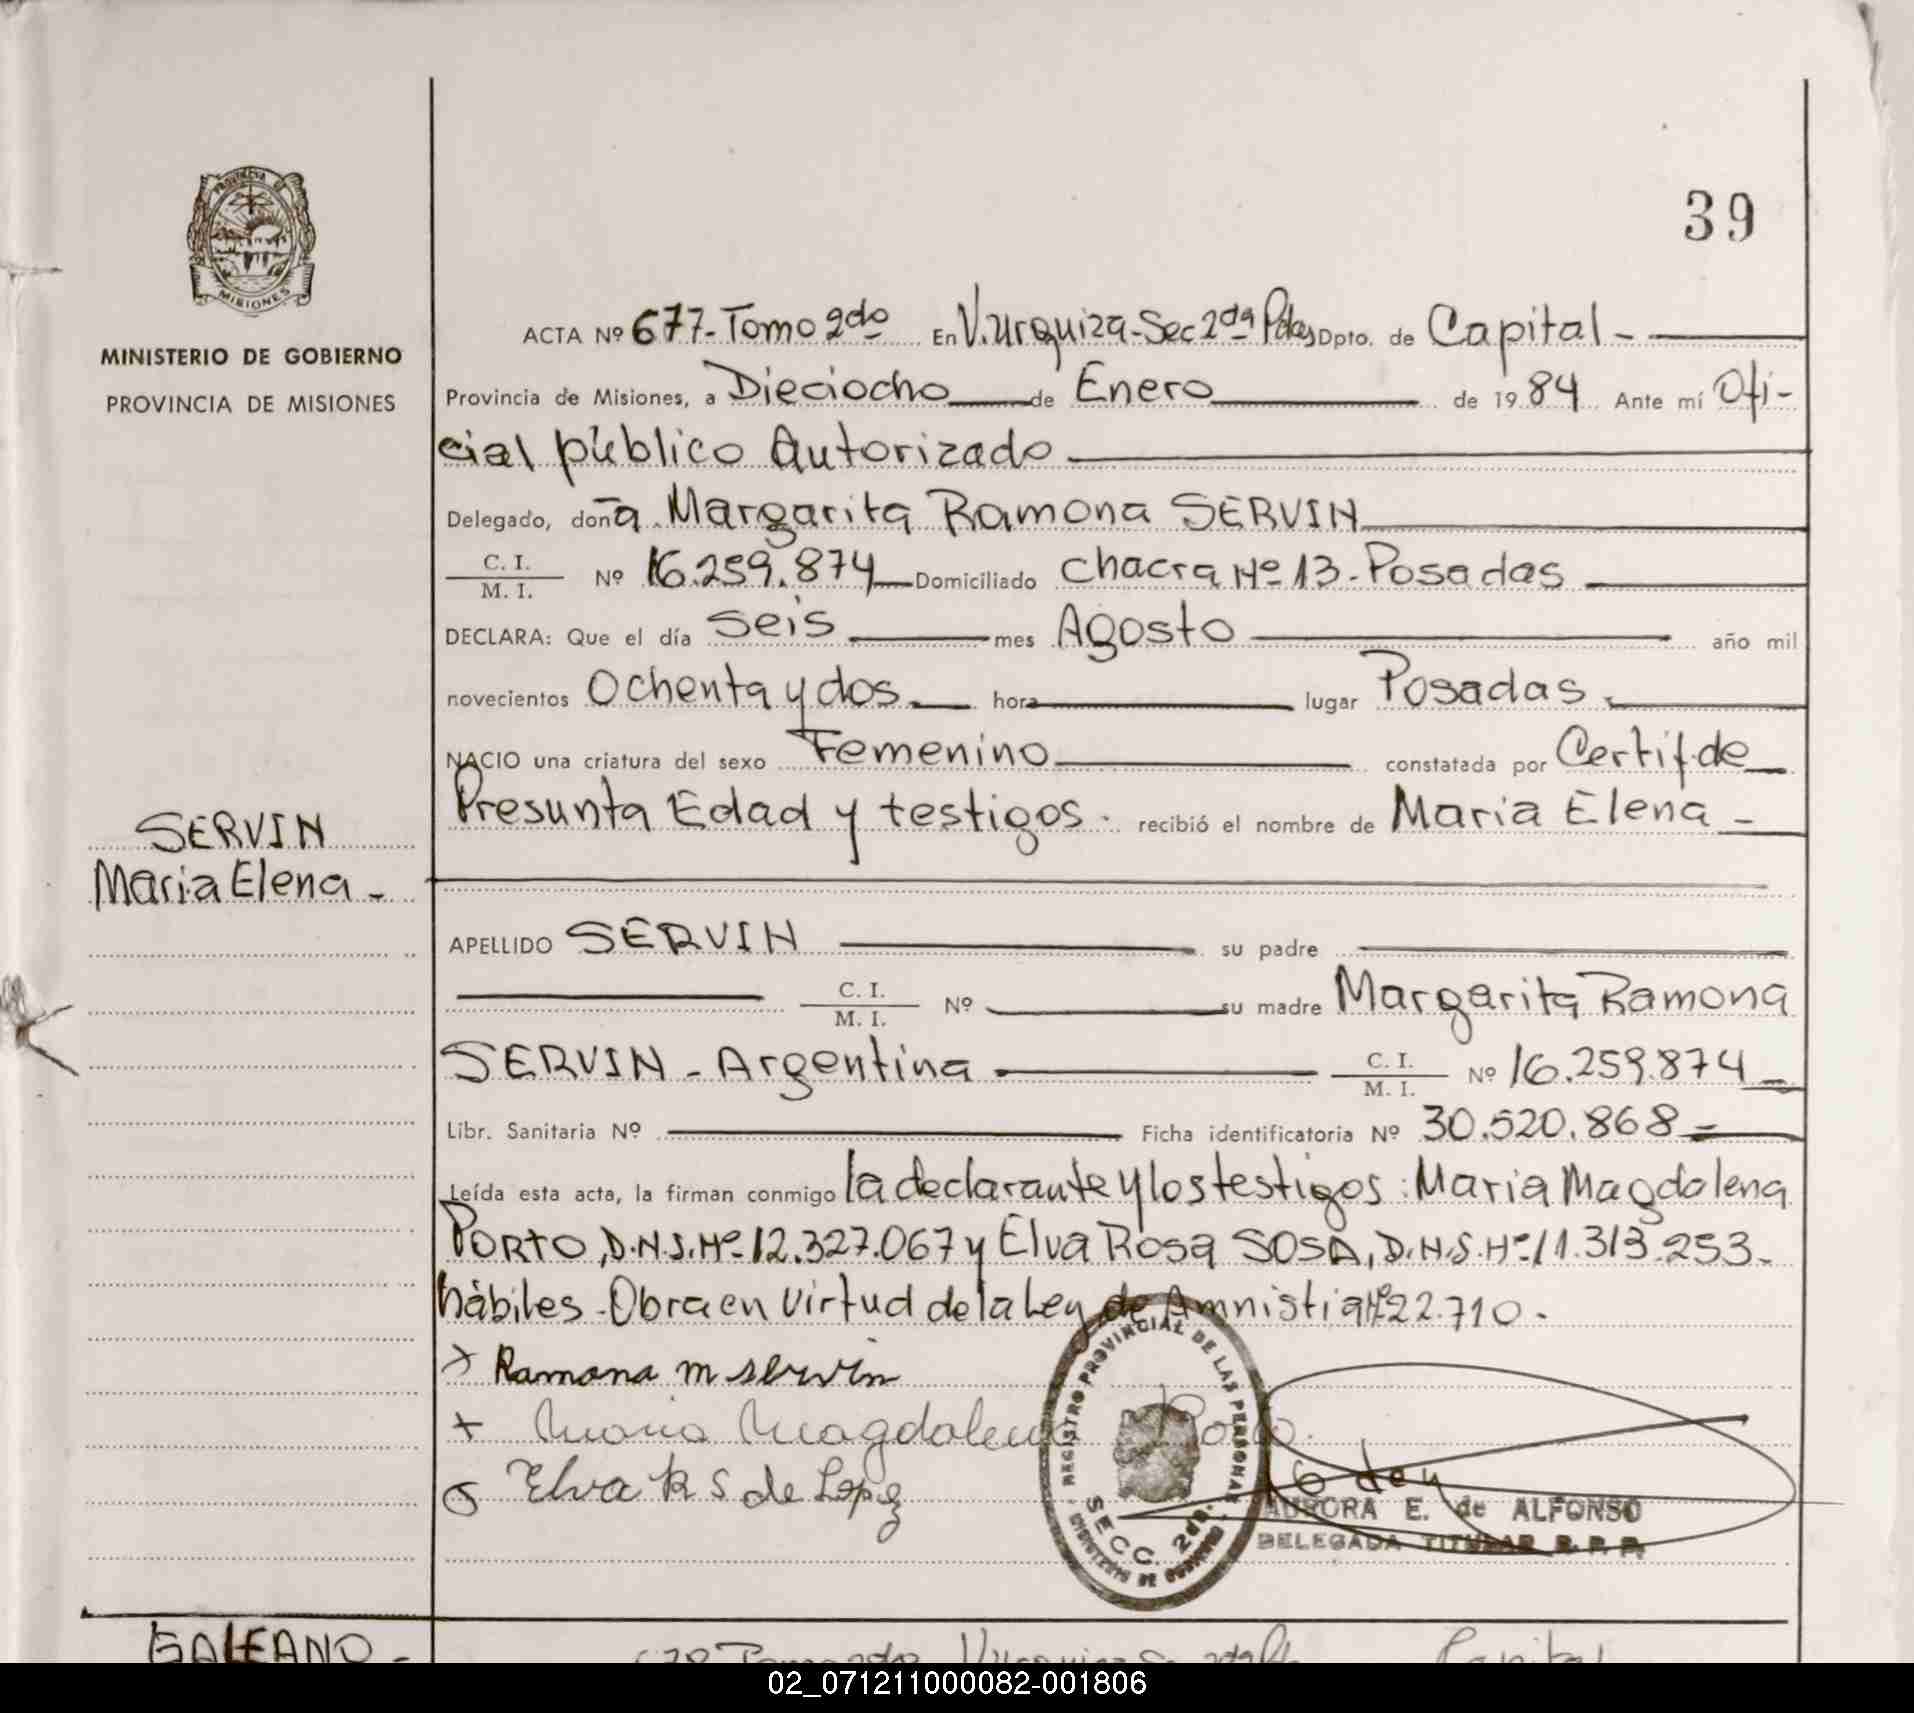 PROVINCIA DE
MISIONES
MINISTERIO DE GOBIERNO
PROVINCIA DE MISIONES
39
ACTA Nº 677- Tomo 2do En V. Urquiza-Sec 2da Pdas Dpto. de Capital -
Provincia de Misiones, a Dieciocho de Enero de 1984 Ante mí Ofi-
cial público Autorizado
Delegado, don-a Margarita Ramona SERVIN
C. I.
M. I. Nº 16.259.874 Domiciliado Chacra Nº 13-Posadas
DECLARA: Que el día Seis mes Agosto año mil
novecientos Ochenta y dos hora lugar Posadas.
NACIO una criatura del sexo Femenino constatada por Certif. de
Presunta Edad y testigos. recibió el nombre de Maria Elena -
SERVIN
Maria Elena -
APELLIDO SERVIN su padre
C. I.
M. I. Nº su madre Margarita Ramona
SERVIN - Argentina C. I.
M. I. Nº 16.259.874
Libr. Sanitaria Nº Ficha identificatoria Nº 30.520.868
Leída esta acta, la firman conmigo la declarante y los testigos: Maria Magdalena
PORTO, D.N.I. Nº 12.327.067 y Elva Rosa SOSA, D.N.I. Nº 11.313.253-
hábiles - Obra en virtud de la Ley de Amnistia Nº 22.710 -
Ramona M Servin
Maria Magdalena Porto.
Elva R S de Lopez
REGISTRO PROVINCIAL DE LAS PERSONAS
SECC. 2da.
MINISTERIO DE GOBIERNO
AURORA E. de ALFONSO
DELEGADA TITULAR R. P. P.
GALEANO -
678 Tomo 2do V. Urquiza Sec 2da Capital
02_071211000082-001806